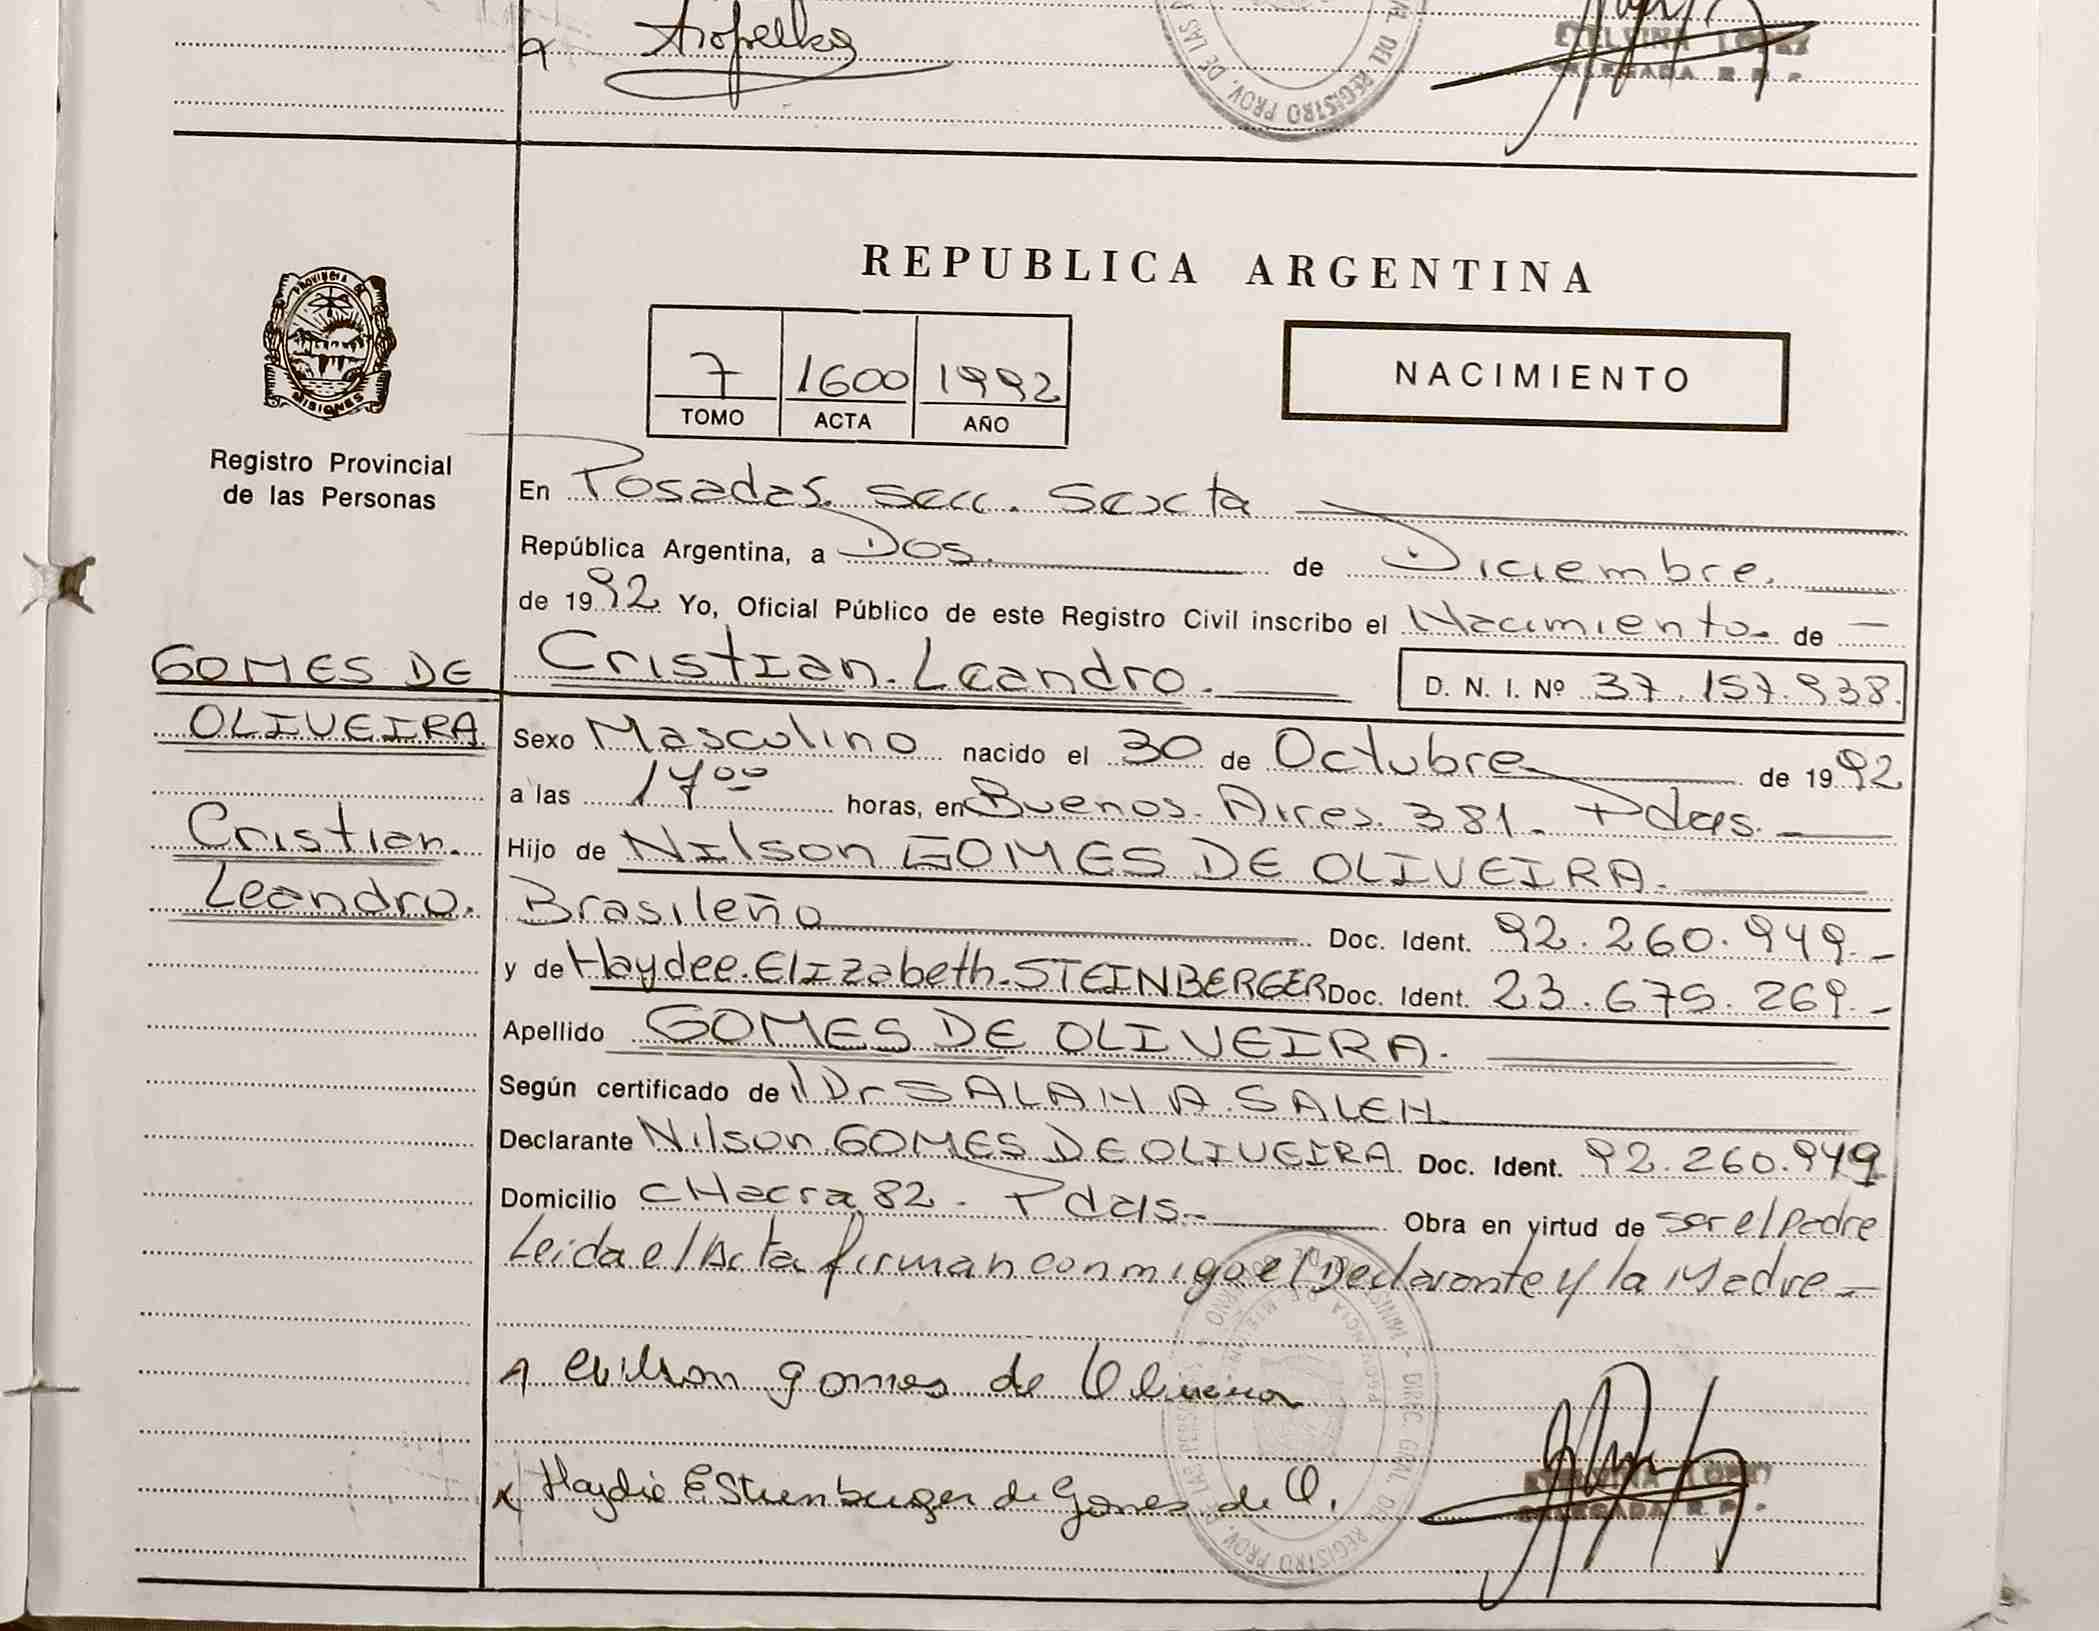 DEL REGISTRO PROV. DE LAS
REPUBLICA ARGENTINA
PROVINCIA DE
MISIONES
Registro Provincial
de las Personas
7 1600 1992
TOMO ACTA AÑO
NACIMIENTO
En Posadas. secc. sexta
República Argentina, a Dos. de Diciembre.
de 1992 Yo, Oficial Público de este Registro Civil inscribo el Nacimiento. de
GOMES DE
OLIVEIRA
Cristian.
Leandro.
Cristian. Leandro. D. N. I. Nº 37.157.938.
Sexo Masculino nacido el 30 de Octubre de 1992
a las 17⁰⁰ horas, en Buenos. Aires. 381. Pdas.
Hijo de Nilson GOMES DE OLIVEIRA.
Brasileño Doc. Ident. 92.260.949.-
y de Haydee. Elizabeth. STEINBERGER Doc. Ident. 23.675.269.-
Apellido GOMES DE OLIVEIRA.
Según certificado de Dr SALAH A. SALEH
Declarante Nilson. GOMES DE OLIVEIRA Doc. Ident. 92.260.949
Domicilio cHacra 82. Pdas. Obra en virtud de ser el padre
Leida el Acta firman conmigo el Declarante y la Madre -
Nilson gomes de Oliveira
Haydee E Steinberger de Gomes de O.
DELEGADA R. P.
DIREC. GRAL. DEL REGISTRO PROV. DE LAS PERSONAS